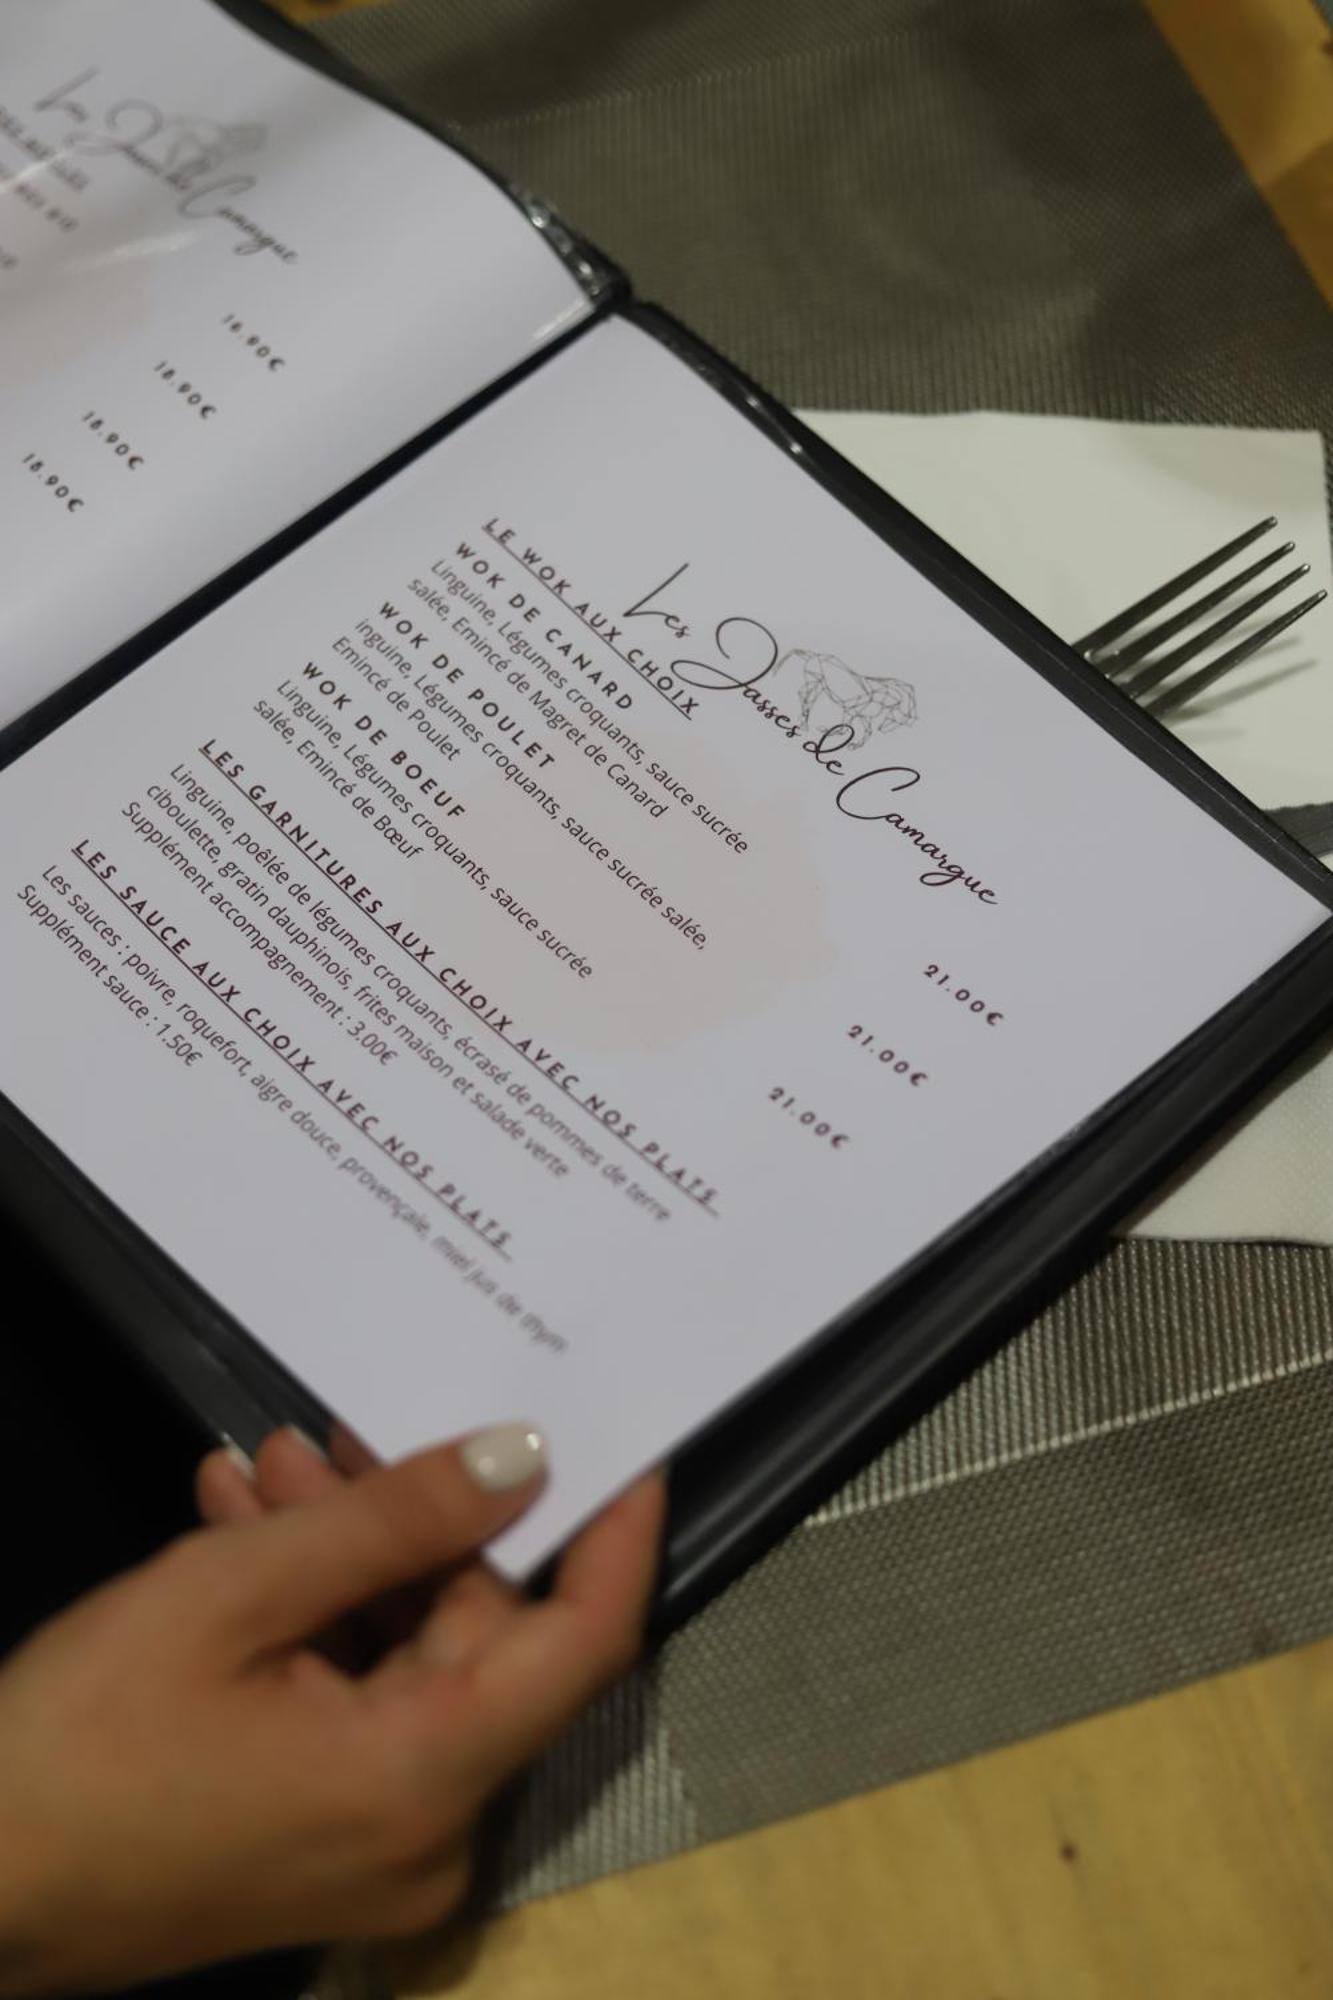 Les Jasses de Camargue
18.90€
18.90€
18.90€
18.90€
Les Jasses de Camargue
LE WOK AUX CHOIX
WOK DE CANARD
21.00€
Linguine, Légumes croquants, sauce sucrée
salée, Emincé de Magret de Canard
WOK DE POULET
21.00€
inguine, Légumes croquants, sauce sucrée salée,
Emincé de Poulet
WOK DE BOEUF
21.00€
Linguine, Légumes croquants, sauce sucrée
salée, Emincé de Bœuf
LES GARNITURES AUX CHOIX AVEC NOS PLATS
Linguine, poêlée de légumes croquants, écrasé de pommes de terre
ciboulette, gratin dauphinois, frites maison et salade verte
Supplément accompagnement : 3.00€
LES SAUCE AUX CHOIX AVEC NOS PLATS
Les sauces : poivre, roquefort, aigre douce, provençale, miel jus de thym
Supplément sauce : 1.50€